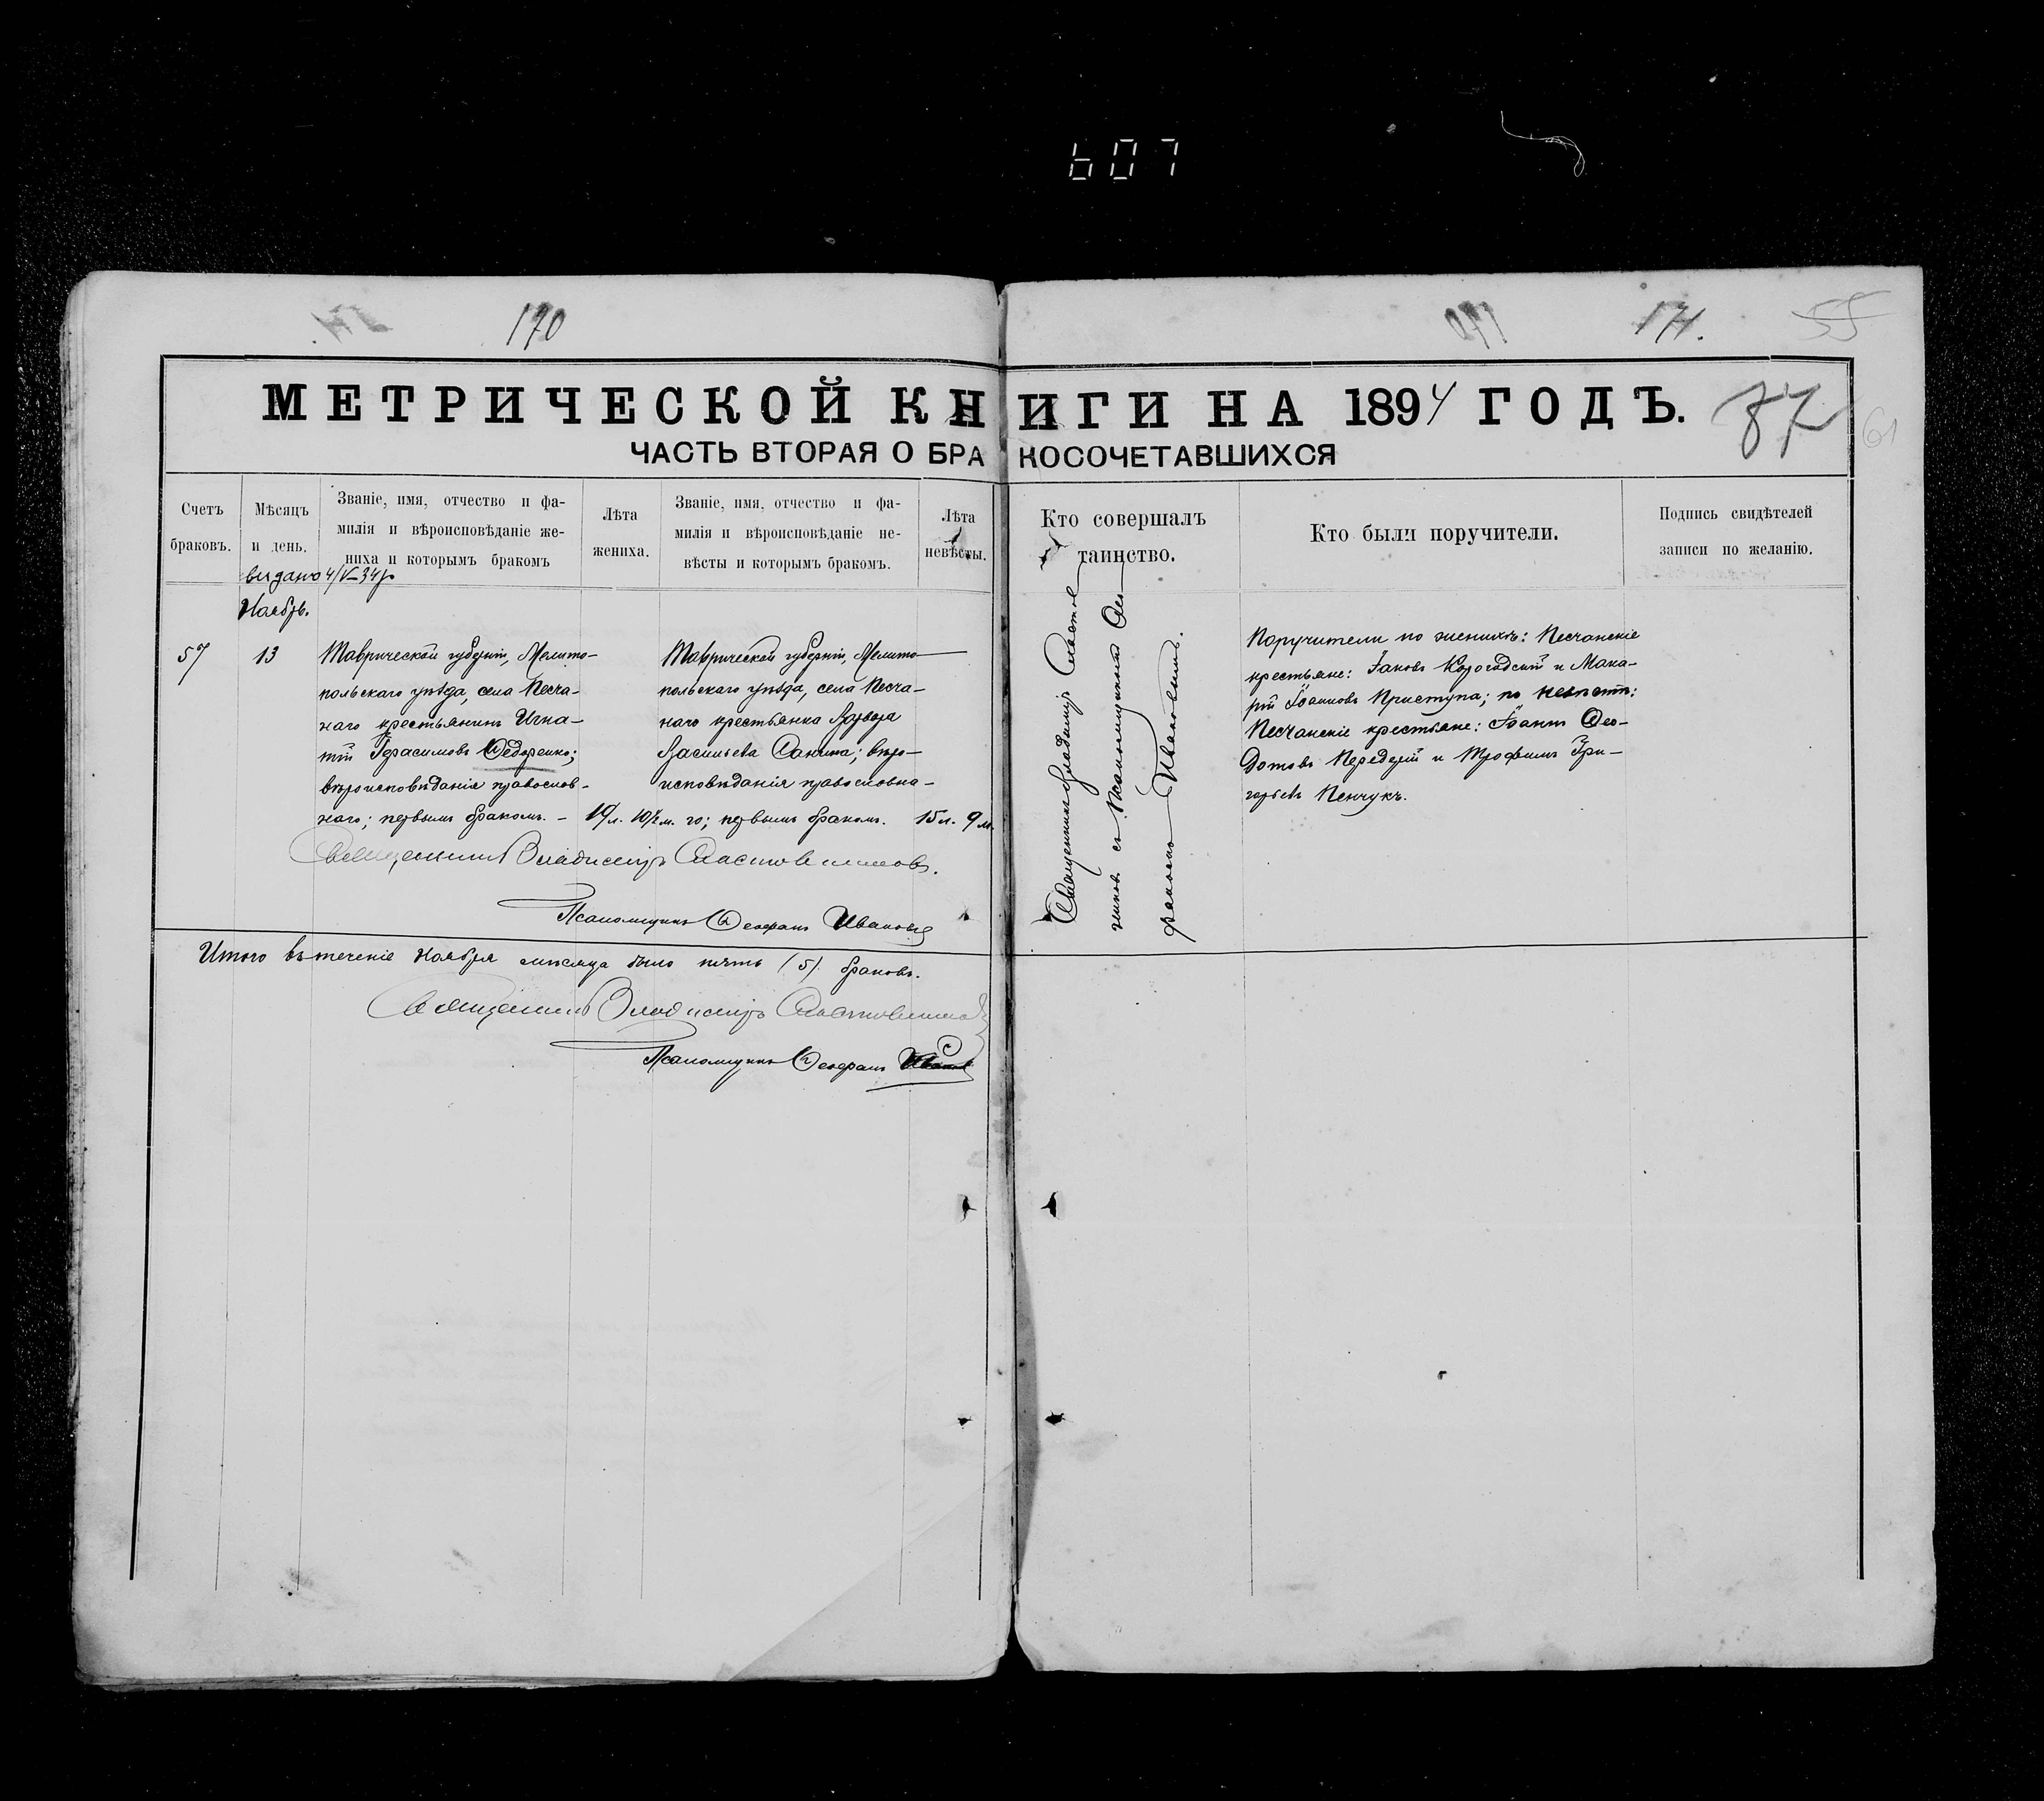 607
170
171.
55
МЕТРИЧЕСКОЙ КНИГИ НА 1894 ГОДЪ.
87
61
ЧАСТЬ ВТОРАЯ О БРАКОСОЧЕТАВШИХСЯ
Счетъ браковъ.
Мѣсяцъ и день.
Званіе, имя, отчество и фамилія и вѣроисповѣданіе жениха и которымъ бракомъ
Лѣта жениха.
Званіе, имя, отчество и фамилія и вѣроисповѣданіе невѣсты и которымъ бракомъ.
Лѣта невѣсты.
Кто совершалъ таинство.
Кто были поручители.
Подпись свидѣтелей записи по желанію.
выдано 4/V–34г
Ноябрь.
57
13
Таврической губерніи, Мелито-
польскаго уѣзда, села Песча-
наго крестьянинъ Игна-
тій Герасимовъ Ѳедоренко;
вѣроисповѣданія православ-
наго; первымъ бракомъ. –
19 л. 10½ м.
Таврической губерніи, Мелито-
польскаго уѣзда, села Песча-
наго крестьянка Варвара
Васильева Санина; вѣро-
исповѣданія православна-
го; первымъ бракомъ.
15 л. 9 м.
Священникъ Владиміръ
съ Псаломщикомъ Ѳео-
фаномъ Ивановымъ.
Поручители по женихѣ: Песчанскіе
крестьяне: Іаковъ Корогодскій и Мака-
рій Іоанновъ Приступа; по невѣстѣ:
Песчанскіе крестьяне: Іоаннъ Ѳео-
дотовъ Передерій и Трофимъ Гри-
горьевъ Пенчукъ.
Священникъ Владиміръ
Псаломщикъ Ѳеофанъ Ивановъ
Итого въ теченіе Ноября мѣсяца было пять (5) браковъ.
Священникъ Владиміръ
Псаломщикъ Ѳеофанъ Ивановъ